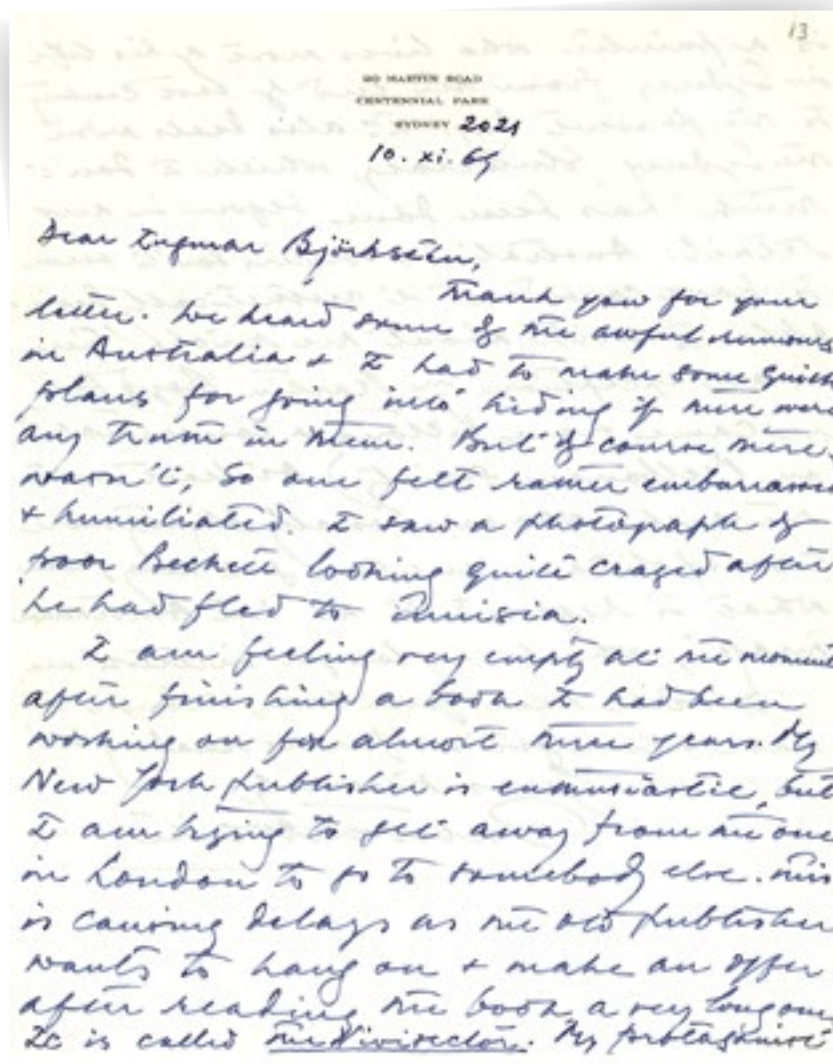 13
20 MARTIN ROAD
CENTENNIAL PARK
SYDNEY 2021
10. xi. 69
Dear Ingmar Björkstén,
Thank you for your
letter. We heard some of the awful rumours
in Australia & I had to make some quick
plans for going into hiding if there were
any truth in them. But of course there
wasn't, so one felt rather embarrassed
& humiliated. I saw a photograph of
poor Beckett looking quite crazed after
he had fled to Tunisia.
I am feeling very empty at the moment
after finishing a book I had been
working on for almost three years. My
New York publisher is enthusiastic, but
I am trying to get away from the one
in London to go to somebody else. This
is causing delays as the old publisher
wants to hang on & make an offer
after reading the book a very long one
It is called The Vivisector. My protagonist